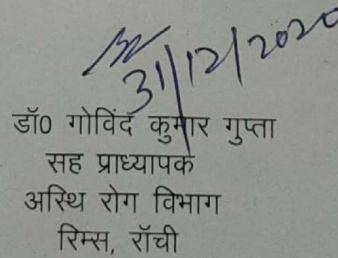 31/12/2020
डॉ0 गोविंद कुमार गुप्ता
सह प्राध्यापक
अस्थि रोग विभाग
रिम्स, रॉची